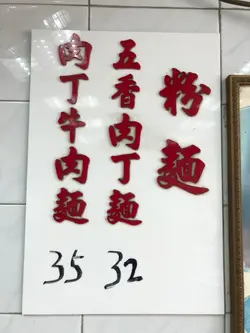 粉麵
五香肉丁麵
32
肉丁牛肉麵
35